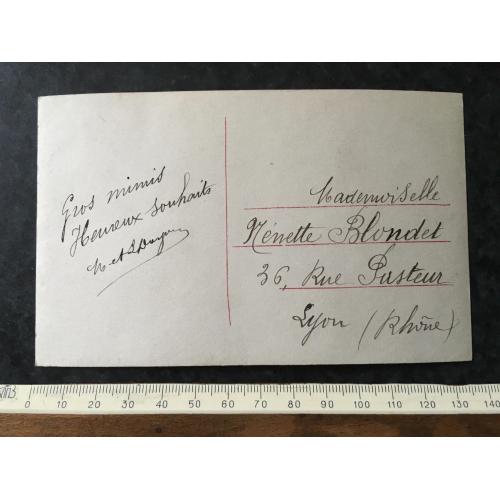 Gros mimis
Heureux souhaits
M et
Mademoiselle
Nénette Blondet
36, Rue Pasteur
Lyon (Rhône)
0 10 20 30 40 50 60 70 80 90 100 110 120 130 140